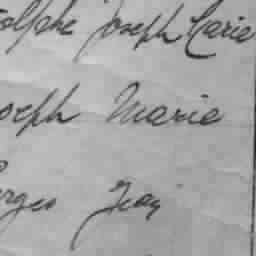 olphe Joseph Marie
oseph Marie
orges Jean